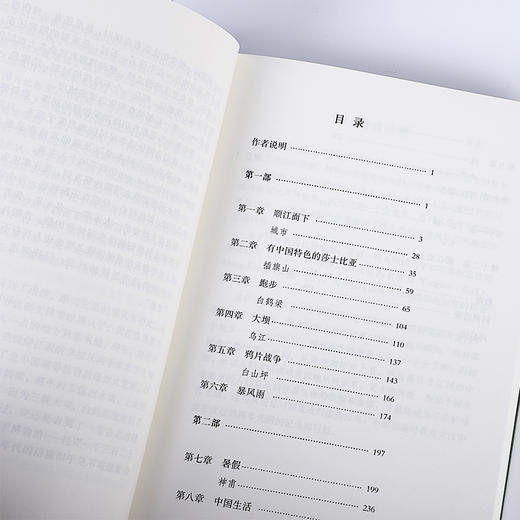 目 录
作者说明 1
第一部 1
第一章 顺江而下 3
城市 28
第二章 有中国特色的莎士比亚 35
插旗山 59
第三章 跑步 65
白鹤梁 104
第四章 大坝 110
乌江 137
第五章 鸦片战争 143
白山坪 166
第六章 暴风雨 174
第二部 197
第七章 暑假 199
神甫 236
第八章 中国生活